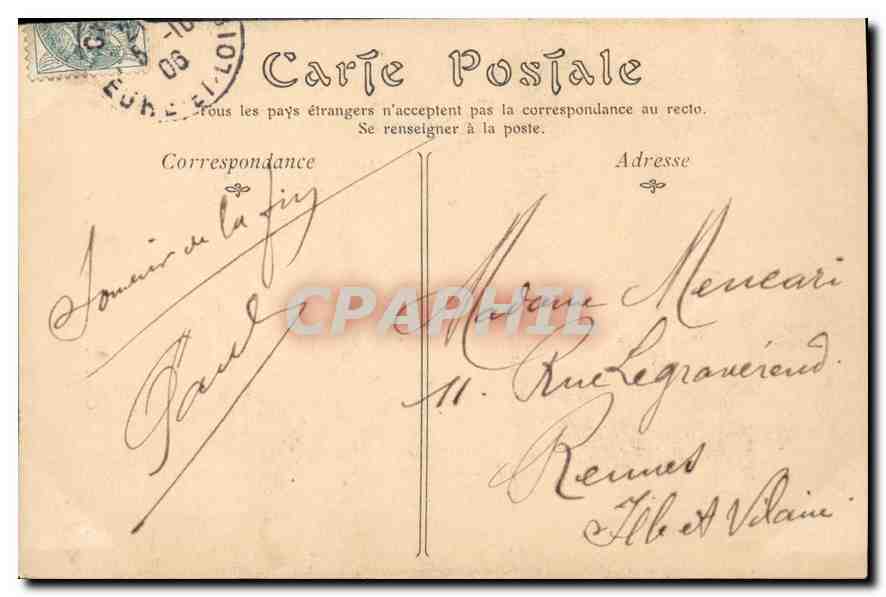 -10
06
EURE-ET-LOI
Carte Postale
Tous les pays étrangers n'acceptent pas la correspondance au recto.
Se renseigner à la poste.
Correspondance
Adresse
Souvenir de la
Paul
Madame Mencari
11. Rue Legraverend.
Rennes
Ille et Vilaine
CPAPHIL